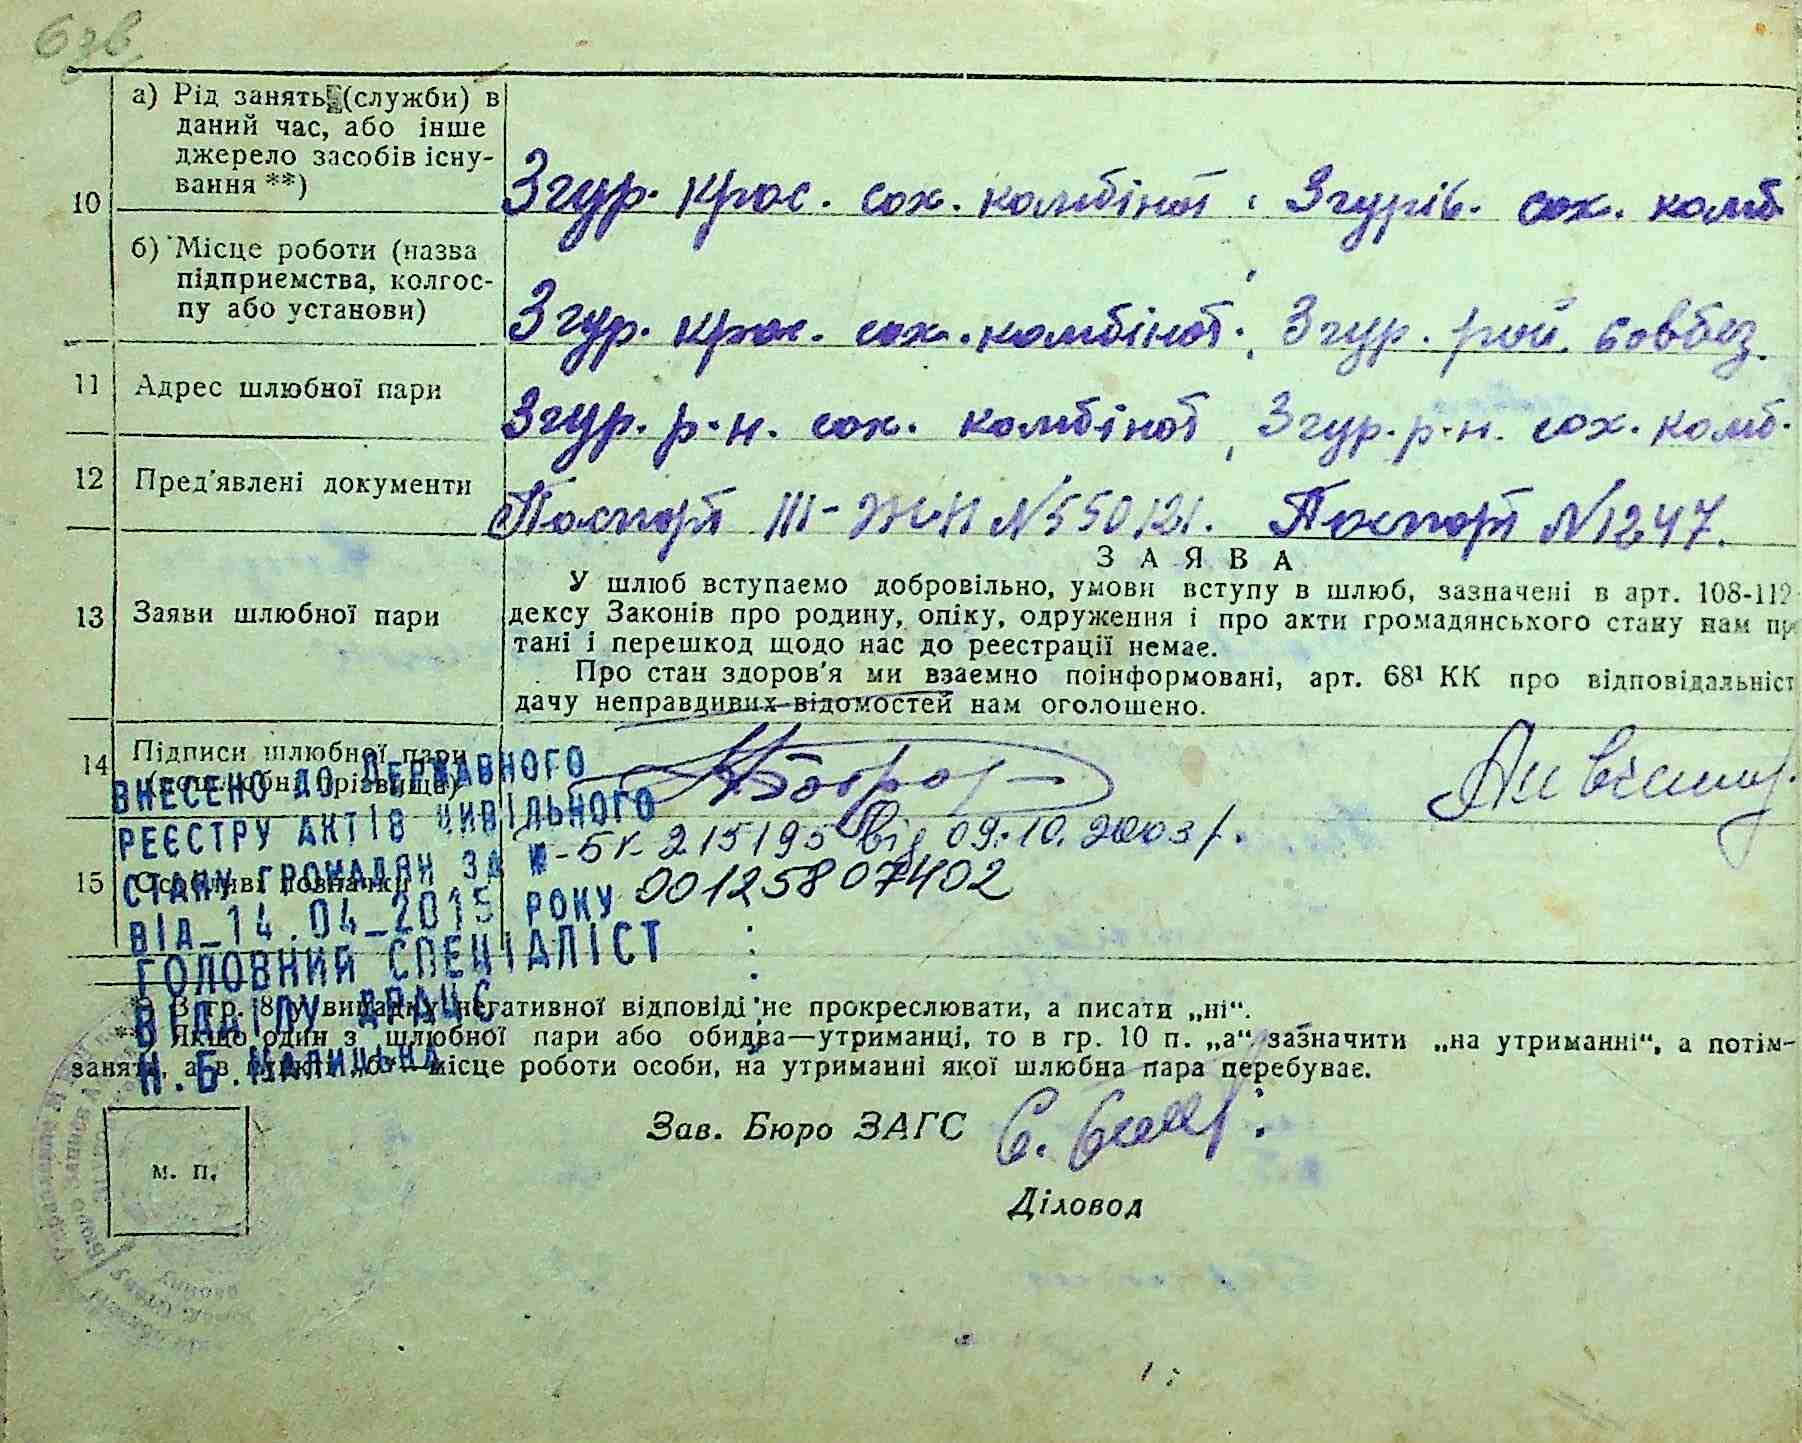 63в
10
а) Рід занять (служби) в
даний час, або інше
джерело засобів існу-
вання **)
Згур. крас. сах. комбінат. Згурів. сах. комб
б) Місце роботи (назва
підприємства, колгос-
пу або установи)
Згур. крас. сах. комбінат. Згур. рай.
11 Адрес шлюбної пари
Згур. р-н. сах. комбінат, Згур. р-н. сах. комб.
12 Пред'явлені документи
Паспорт III-ЖН №550121. Паспорт №1247.
13 Заяви шлюбної пари
ЗАЯВА
У шлюб вступаемо добровільно, умови вступу в шлюб, зазначені в арт. 108-112
дексу Законів про родину, опіку, одруження і про акти громадянського стану нам пр
тані і перешкод щодо нас до реестрації немає.
Про стан здоров'я ми взаемно поінформовані, арт. 68¹ КК про відповідальніст
дачу неправдивих відомостей нам оголошено.
14 Підписи шлюбної пари
(дошлюбні прізвища)
ВНЕСЕНО ДО ДЕРЖАВНОГО
РЕЄСТРУ АКТІВ ЦИВІЛЬНОГО
СТАНУ ГРОМАДЯН ЗА №
ВІД_14.04_2015 РОКУ 00125807402
ГОЛОВНИЙ СПЕЦІАЛІСТ
ВІДДІЛУ ДРАЦС
Н.Б.МАЛИЦЬКА
15 Особливі познач
І-БК-215195 від 09.10.2003р.
*) В гр. 8 у випадку негативної відповіді не прокреслювати, а писати „ні“.
**) Якщо один з шлюбної пари або обидва—утриманці, то в гр. 10 п. „а“ зазначити „на утриманні“, а потім-
заняття, а в пункті „б“—місце роботи особи, на утриманні якої шлюбна пара перебуває.
Зав. Бюро ЗАГС
м. п.
Діловод